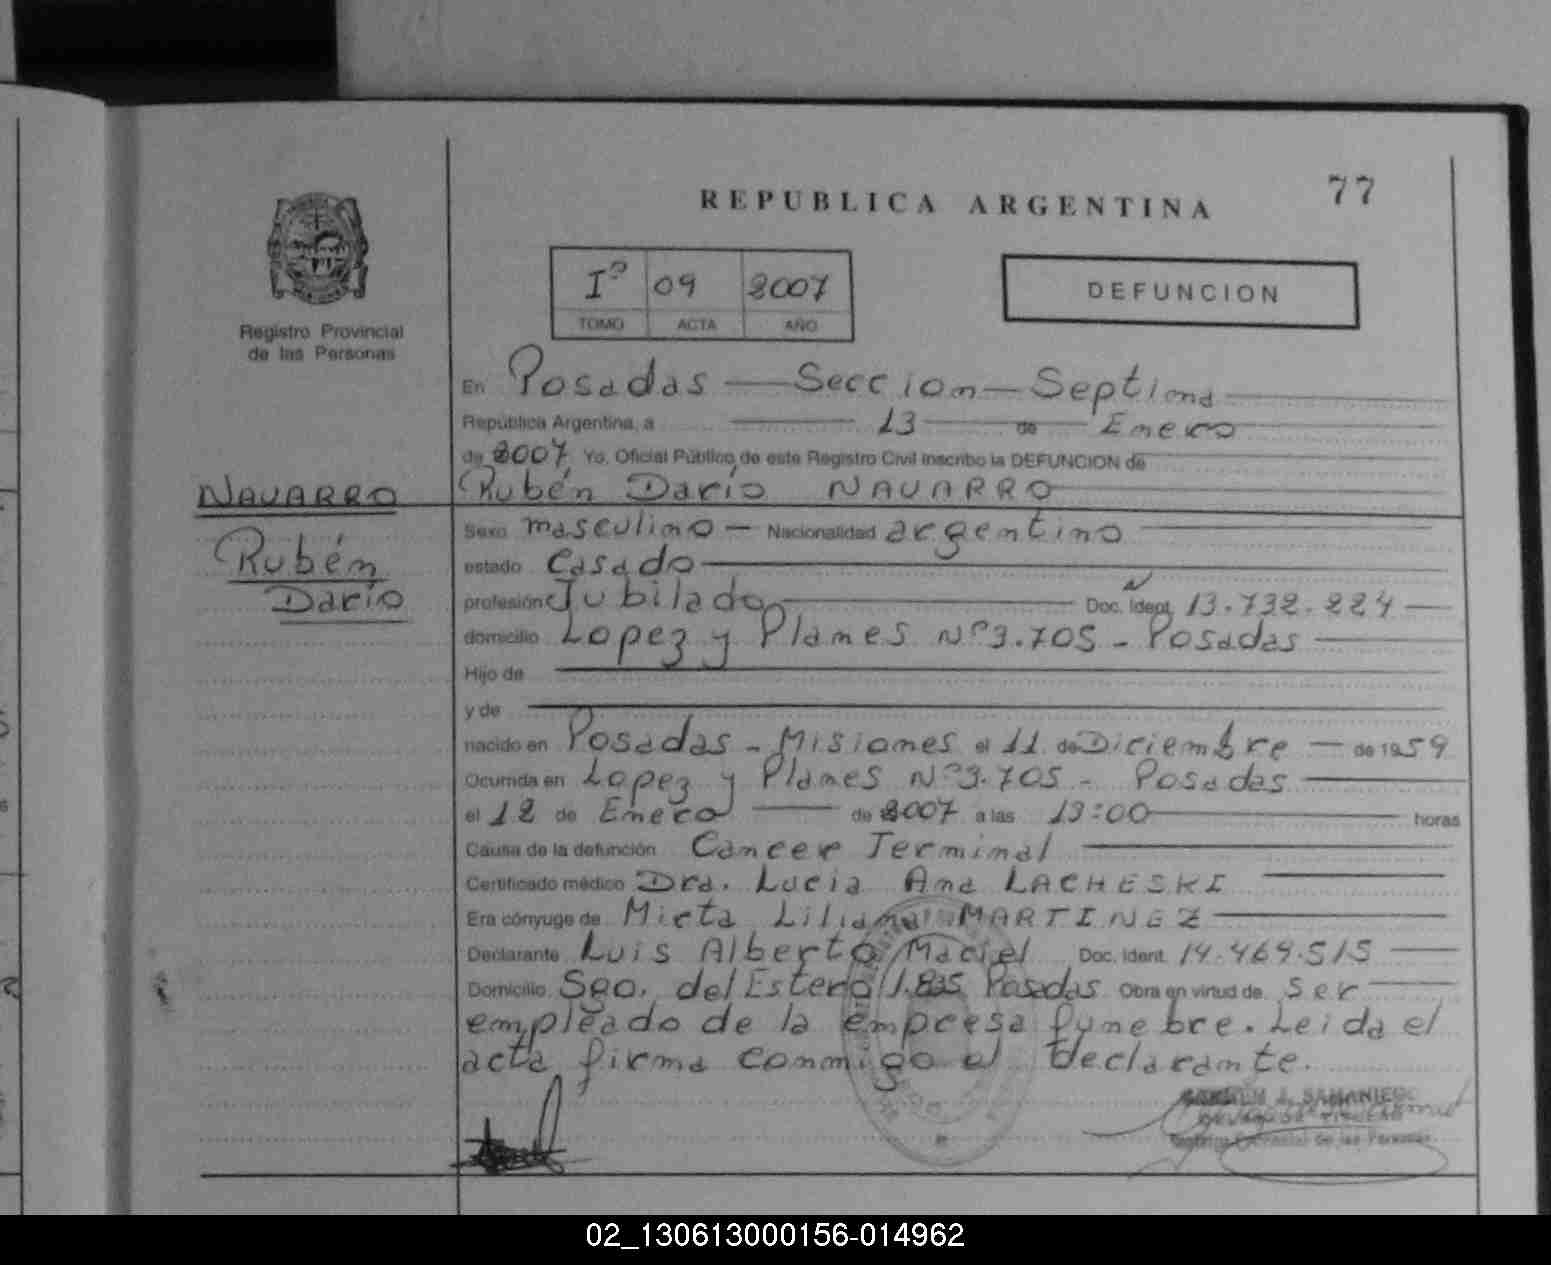 77
REPUBLICA ARGENTINA
Registro Provincial
de las Personas
Iº 09 2007
TOMO ACTA AÑO
DEFUNCION
En Posadas — Seccion — Septima
República Argentina, a 13 de Enero
de 2007 Yo, Oficial Público de este Registro Civil inscribo la DEFUNCION de
NAVARRO
Rubén Darío
Rubén Darío NAVARRO
Sexo masculino — Nacionalidad argentino
estado Casado
profesión Jubilado Doc. Ident. 13.732.224
domicilio Lopez y Planes Nº 3.705 - Posadas
Hijo de
y de
nacido en Posadas - Misiones el 11 de Diciembre — de 1959
Ocurrida en Lopez y Planes Nº 3.705 - Posadas
el 12 de Enero de 2007 a las 13:00 horas
Causa de la defunción Cancer Terminal
Certificado médico Dra. Lucia Ana LACHESKI
Era cónyuge de Mirta Liliana MARTINEZ
Declarante Luis Alberto Maciel Doc. Ident. 14.469.515
Domicilio Sgo. del Estero 1.835 Posadas Obra en virtud de ser
empleado de la empresa funebre. Leida el
acta firma conmigo el declarante.
J. SAMANIEGO
Registro Provincial de las Personas
02_130613000156-014962